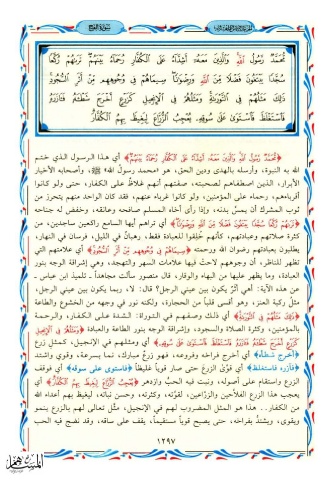 سورة الفتح
مُحَمَّدٌ رَسُولُ اللَّهِ وَالَّذِينَ مَعَهُ أَشِدَّاءُ عَلَى الْكُفَّارِ رُحَمَاءُ بَيْنَهُمْ تَرَاهُمْ رُكَّعًا
سُجَّدًا يَبْتَغُونَ فَضْلًا مِنَ اللَّهِ وَرِضْوَانًا سِيمَاهُمْ فِي وُجُوهِهِمْ مِنْ أَثَرِ السُّجُودِ
ذَلِكَ مَثَلُهُمْ فِي التَّوْرَاةِ وَمَثَلُهُمْ فِي الْإِنْجِيلِ كَزَرْعٍ أَخْرَجَ شَطْأَهُ فَآزَرَهُ
فَاسْتَغْلَظَ فَاسْتَوَى عَلَى سُوقِهِ يُعْجِبُ الزُّرَّاعَ لِيَغِيظَ بِهِمُ الْكُفَّارَ
﴿مُحَمَّدٌ رَسُولُ اللَّهِ وَالَّذِينَ مَعَهُ أَشِدَّاءُ عَلَى الْكُفَّارِ رُحَمَاءُ بَيْنَهُمْ﴾ أي هذا الرسول الذي ختم
الله به النبوة، وأرسله بالهدى ودين الحق، هو «محمد رسول الله» ﷺ، وأصحابه الأخيار
الأبرار، الذين اصطفاهم لصحبته، صفتهم أنهم غلاظ على الكفار، حتى ولو كانوا
أقرباءهم، رحماء على المؤمنين، ولو كانوا غرباء عنهم، فقد كان الواحد منهم يتحرز من
ثوب المشرك أن يمس بدنه، وإذا رأى أخاه المسلم صافحه وعانقه، وخفض له جناحه
﴿تَرَاهُمْ رُكَّعًا سُجَّدًا يَبْتَغُونَ فَضْلًا مِنَ اللَّهِ وَرِضْوَانًا﴾ أي تراهم أيها السامع راكعين ساجدين، من
كثرة صلاتهم وعبادتهم، كأنهم خلقوا للعبادة فقط، رهبان في الليل، فرسان في النهار،
يطلبون بعبادتهم رضوان الله ورحمته ﴿سِيمَاهُمْ فِي وُجُوهِهِمْ مِنْ أَثَرِ السُّجُودِ﴾ أي علامتهم التي
تظهر للناظر، أن وجوههم لاحت فيها علامات السهر والتهجد، وهي إشراقة الوجه بنور
العبادة، وما يظهر عليها من البهاء والوقار، قال منصور سألت مجاهداً ـ تلميذ ابن عباس ـ
عن هذه الآية: أهي أثر يكون بين عيني الرجل؟ قال: لا، ربما يكون بين عيني الرجل،
مثل ركبة العنز، وهو أقسى قلباً من الحجارة، ولكنه نور في وجهه من الخشوع والطاعة
﴿ذَلِكَ مَثَلُهُمْ فِي التَّوْرَاةِ﴾ أي ذلك وصفهم في التوراة: الشدة على الكفار، والرحمة
بالمؤمنين، وكثرة الصلاة والسجود، وإشراقة الوجه بنور الطاعة والعبادة ﴿وَمَثَلُهُمْ فِي الْإِنْجِيلِ
كَزَرْعٍ أَخْرَجَ شَطْأَهُ فَآزَرَهُ فَاسْتَغْلَظَ فَاسْتَوَى عَلَى سُوقِهِ﴾ أي ومثلهم في الإنجيل، كمثل زرع
﴿أخرج شطأه﴾ أي أخرج فراخه وفروعه، فهو زرع مبارك، نما بسرعة، وقوي واشتد
﴿فآزره فاستغلظ﴾ أي قوّى الزرع حتى صار قوياً غليظاً ﴿فاستوى على سوقه﴾ أي فوقف
الزرع واستقام على أصوله، ونبت فيه الحب وازدهر ﴿يُعْجِبُ الزُّرَّاعَ لِيَغِيظَ بِهِمُ الْكُفَّارَ﴾ أي
يعجب هذا الزرع الفلاحين والزراعين، لقوته، وكثرته، وحسن نباته، ليغيظ بهم أعداء الله
من الكفار.. هذا هو المثل المضروب لهم في الإنجيل، مثل تعالى لهم بالزرع ينمو
ويقوى، ويشتد بفراخه، حتى يصبح قوياً مستقيماً، يقف على ساقه، وقد نضج فيه الحب
١٢٩٧